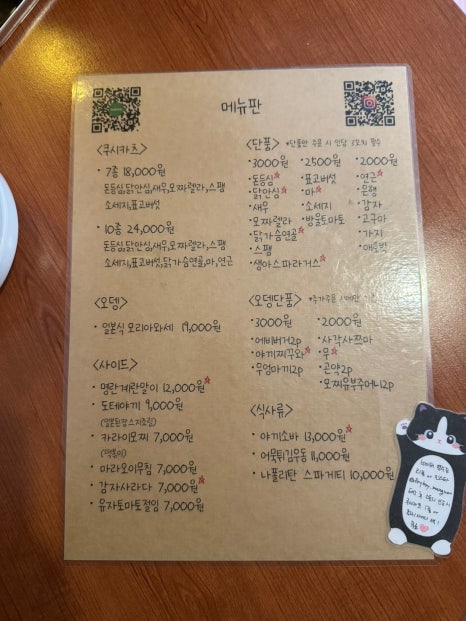 메뉴판
<쿠시카츠>
· 7종 18,000원
돈등심,닭안심,새우,모짜렐라,스팸
소세지,표고버섯
· 10종 24,000원
돈등심,닭안심,새우,모짜렐라,스팸
소세지,표고버섯,닭가슴연골,마,연근
<오뎅>
· 일본식 모리아와세 19,000원
<사이드>
· 명란계란말이 12,000원
· 도테야끼 9,000원
· 카라이모찌 7,000원
(떡볶이)
· 마라오이무침 7,000원
· 감자사라다 7,000원
· 유자토마토절임 7,000원
<단품> *단품만 주문 시 인당 3꼬치 필수
· 3000원
· 돈등심
· 닭안심
· 새우
· 모짜렐라
· 닭가슴연골
· 스팸
· 생아스파라거스
· 2500원
· 표고버섯
· 마
· 소세지
· 방울토마토
· 2000원
· 연근
· 은행
· 감자
· 고구마
· 가지
<오뎅단품>
· 3000원
· 에비버거2p
· 야끼찌꾸와
· 우엉마끼2p
· 2000원
· 사각사쯔마
· 무
· 곤약2p
· 모찌유부주머니2p
<식사류>
· 야끼소바 13,000원
· 어묵튀김우동 11,000원
· 나폴리탄 스파게티 10,000원